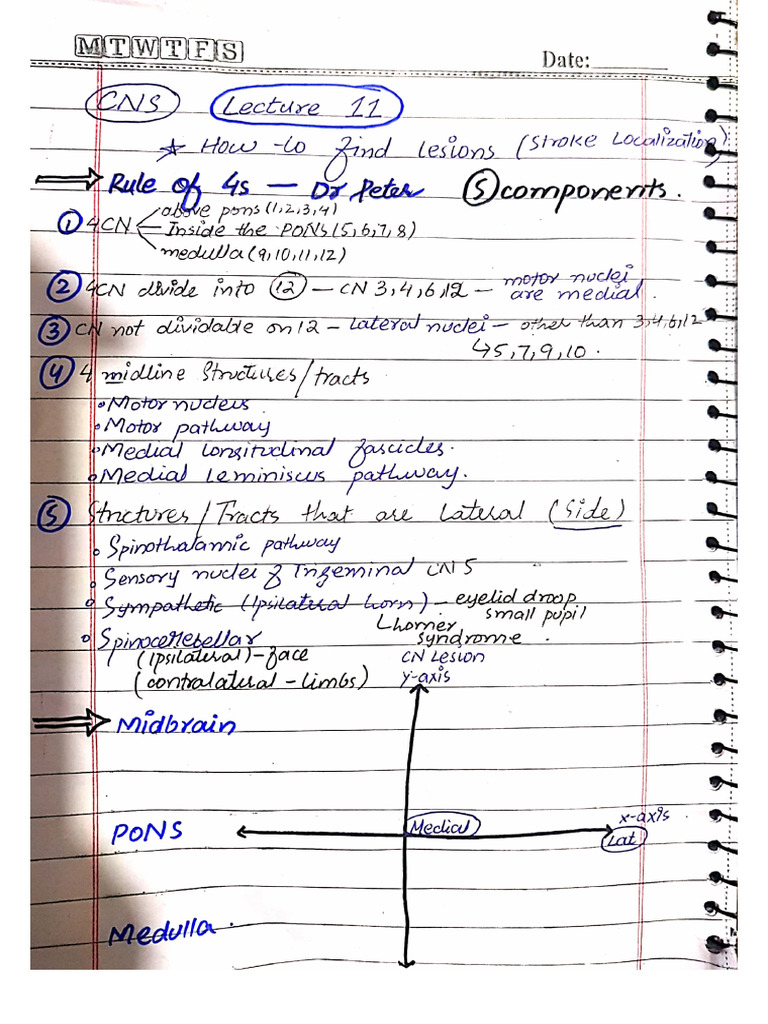 MTWTFS
Date:
CNS Lecture 11
* How to find lesions (Stroke Localization)
Rule of 4s — Dr Peter 5 components.
① 4CN above pons (1,2,3,4)
Inside the PONS (5,6,7,8)
medulla (9,10,11,12)
② 4CN divide into 12 — CN 3,4,6,12 — motor nuclei
are medial.
③ CN not dividable on 12 - Lateral nuclei - other than 3,4,6,12
↳ 5,7,9,10.
④ 4 midline Structures/tracts
• Motor nucleus
• Motor pathway
• Medial Longitudinal fascicles.
• Medial Leminiscus pathway.
⑤ Strictures/Tracts that are Lateral (Side)
• Spinothalamic pathway
• Sensory nuclei of Trigeminal CN5
• Sympathetic (Ipsilateral horn) - eyelid droop
small pupil
Lhorner
syndrome.
• Spinocerebellar
(ipsilateral) - face CN Lesion
(contralatural - limbs) y-axis
Midbrain
PONS Medical x-axis
Lat
Medulla.